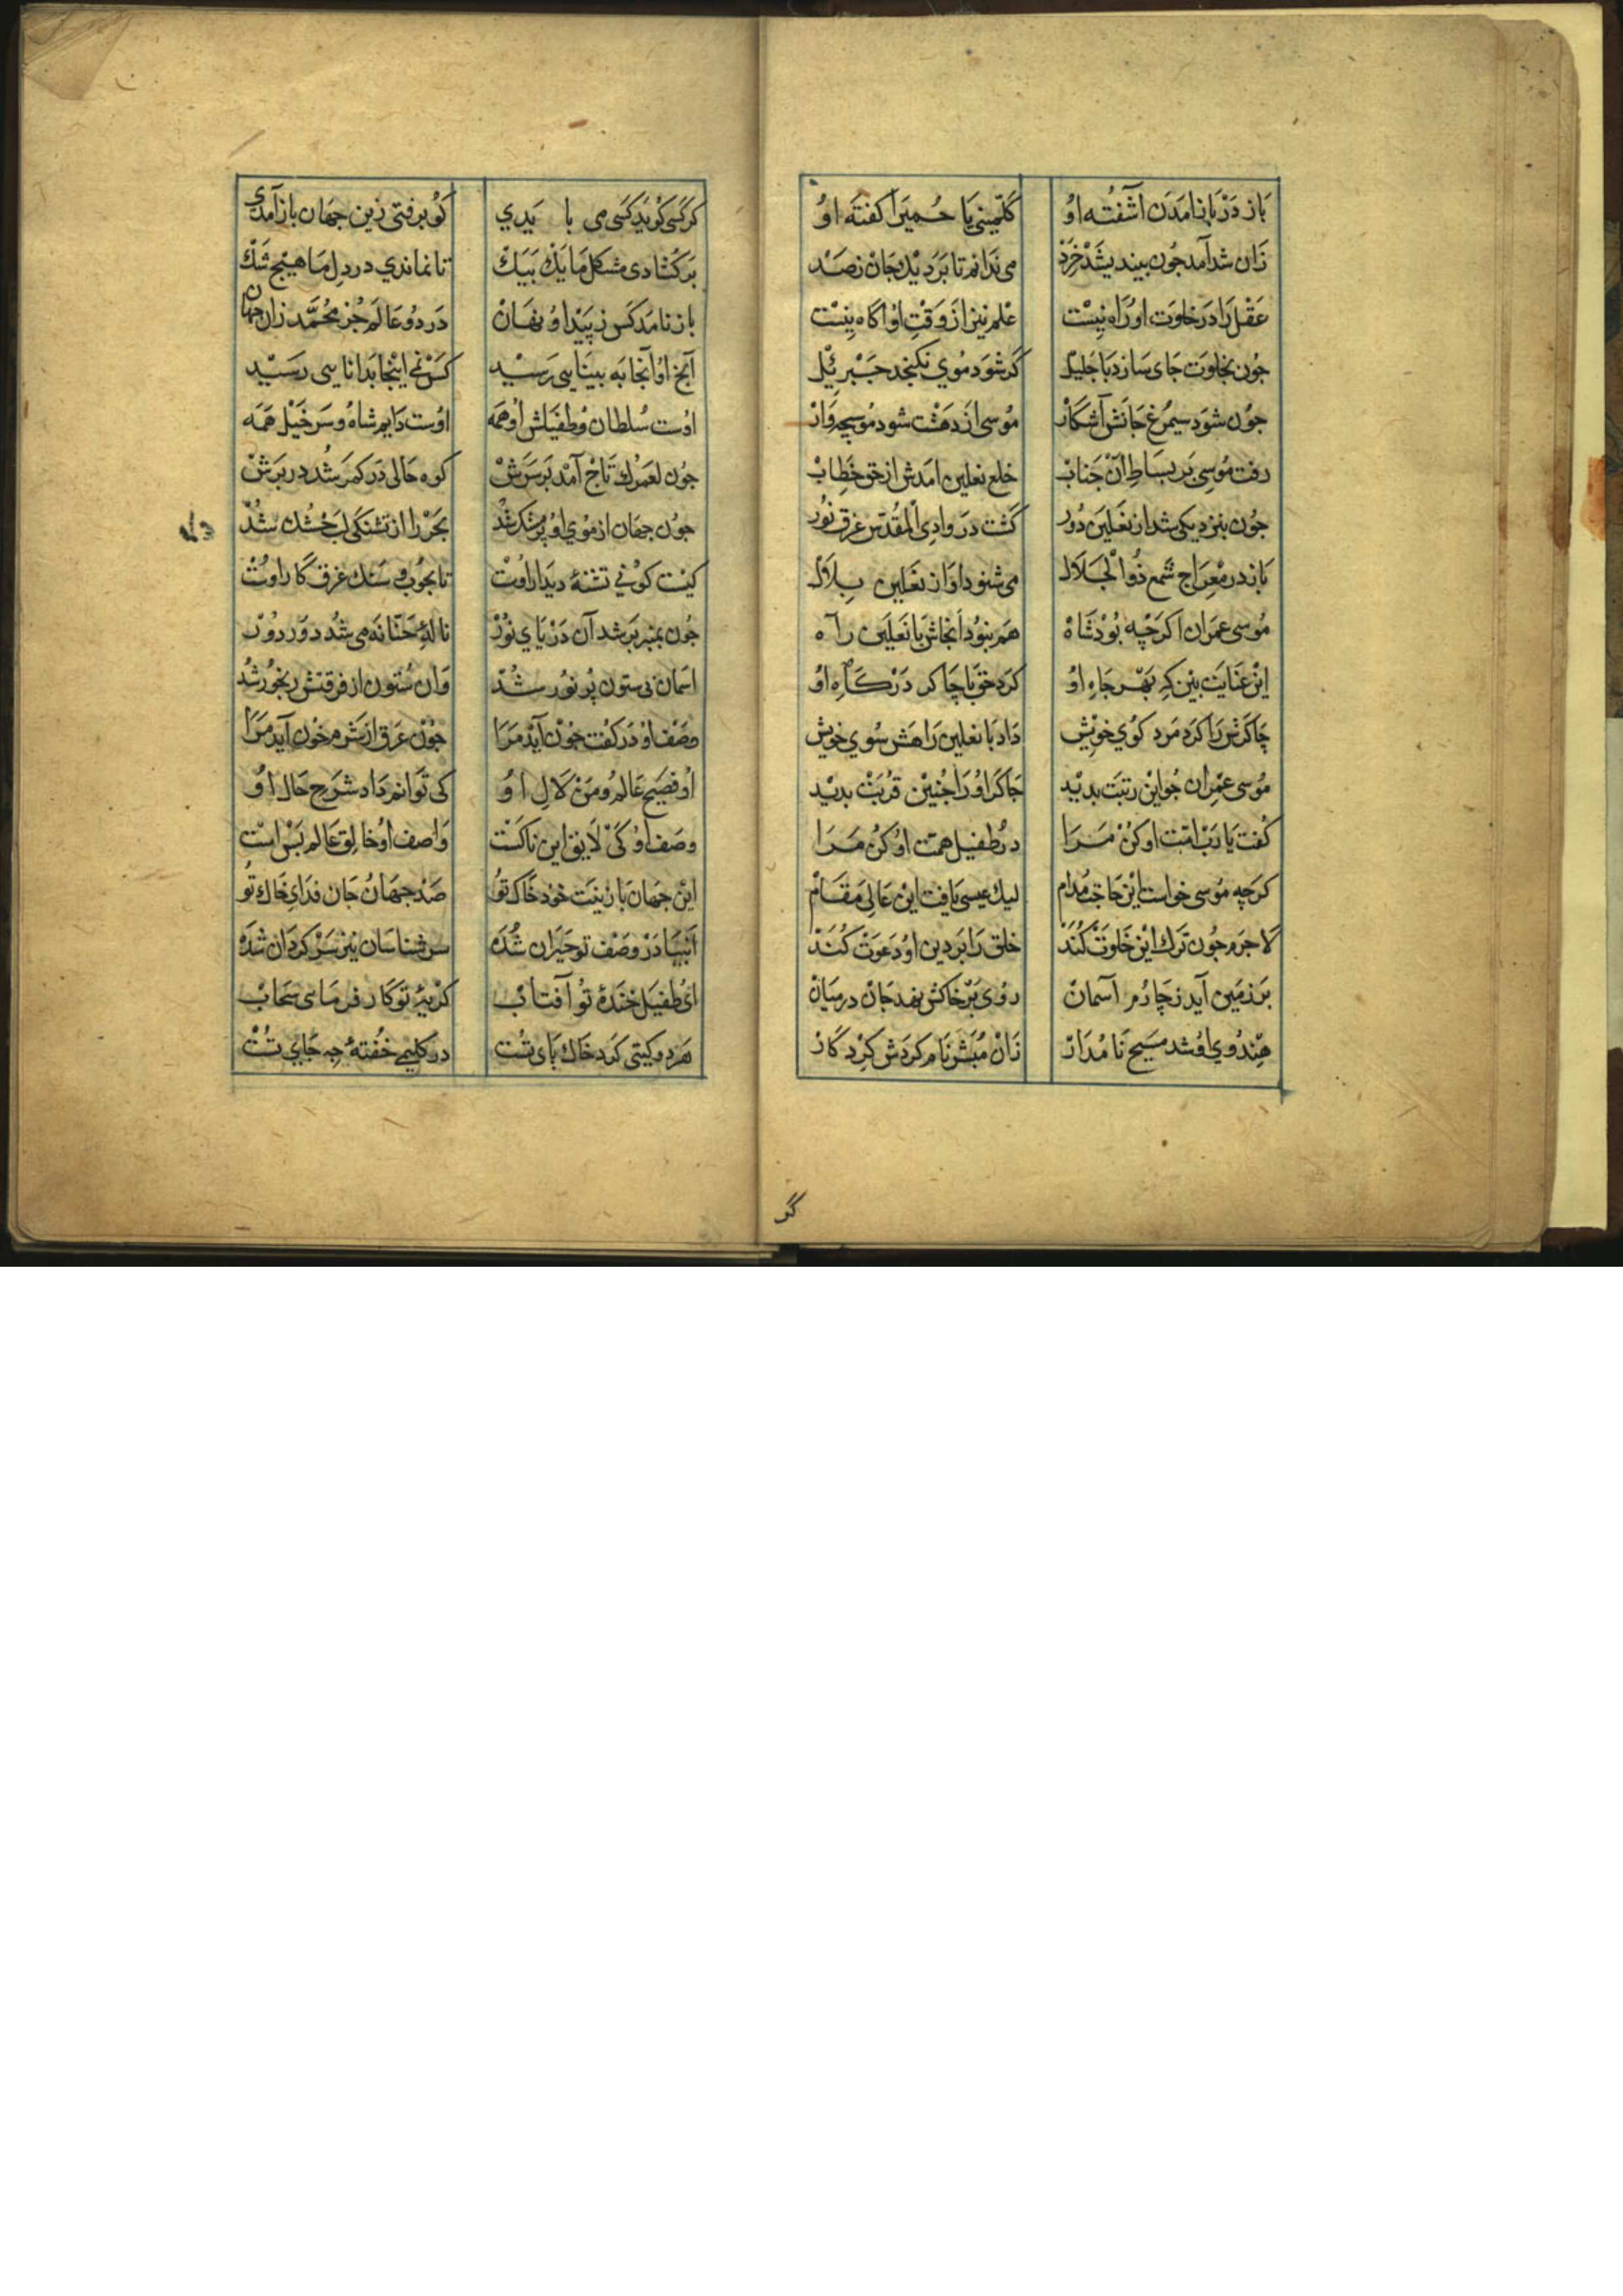 باز در باز آمدن آشفته او
کلمینی یا حمیرا کفته او
زان شد آمد جون بیندیشد خرد
می ندانم تا برد یک جان ز صد
عقل را در خلوت او راه نیست
علم نیز از وقت او اکاه نیست
جون بخلوت جای سازد با جلیل
کر شود موی نکنجد جبرئیل
جون شود سیمرغ جانش آشکار
موسی از دهشت شود موسیجه وار
رفت موسی بر بساط آن جناب
خلع نعلین امدش از حق خطاب
جون بنزدیکی شد از نعلین دور
کشت در وادی المقدس غرق نور
باز در معراج شمع ذو الجلال
می شنود اواز نعلین بلال
موسی عمران اکرچه بود شاه
هم نبود آنجاش با نعلین راه
این عنایت بین که بهر جاه او
کرد حق با چاکر درکاه او
چاکرش را کرد مرد کوی خویش
داد با نعلین راهش سوی خویش
موسی عمران جو این رتبت بدید
جاکر او را جنین قربت بدید
کفت یا رب امت او کن مرا
در طفیل همت او کن مرا
کرچه موسی خواست این حاجت مدام
لیک عیسی یافت این عالی مقام
لاجرم جون ترک این خلوت کند
خلق را بر دین او دعوت کند
بر زمین آید ز چارم آسمان
روی بر خاکش نهد جان در میان
هندوی او شد مسیح نامدار
زان مبشر نام کردش کردکار
کر
کر کسی کوید کسی می با یدی
کو برفتی زین جهان باز آمدی
برکشادی مشکل ما یک بیک
تا نماندی در دل ما هیج شک
باز نامد کس ز پیدا و نهان
در دو عالم جز محمد زان جهان
آنج او آنجا به بینایی رسید
کس نی اینجا بدانایی رسید
اوست سلطان و طفیلش او همه
اوست دایم شاه و سرخیل همه
جون لعمرک تاج آمد بر سرش
کوه حالی در کمر شد در برش
جون جهان از موی او پر مشک شد
بحر را از تشنکی لب خشک شد
کیست کو نی تشنهٔ دیدار اوست
تا بجوب و سنک غرق کار اوست
جون بمنبر بر شد آن دریای نور
نالهٔ حنانه می شد دور دور
اسمان بی ستون پر نور شد
وان ستون از فرقتش رنجور شد
وصف او در کفت جون آید مرا
جون عرق از شرم خون آید مرا
او فصیح عالم و من لال او
کی توانم داد شرح حال او
وصف او کی لایق این ناکست
واصف او خالق عالم بس است
این جهان با رتبت خود خاک تو
صد جهان جان فدای خاک تو
انبیا در وصف تو حیران شده
سرشناسان نیز سرکردان شده
ای طفیل خندهٔ تو آفتاب
کریهٔ تو کار فرمای سحاب
هر دو کیتی کرد خاک پای تست
در کلیمی خفتهٔ چه جای تست